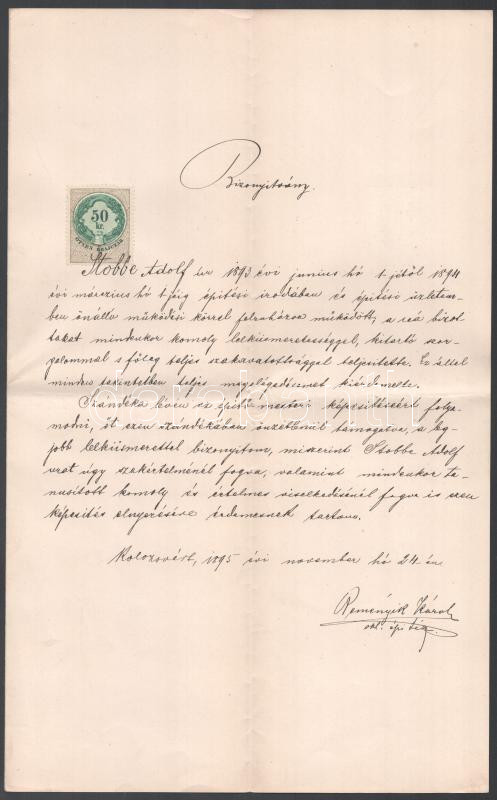 Bizonyitvány.
50
kr.
ÖTVEN KRAJCZÁR
Stobbe Adolf úr 1893 évi junius hó 1 jétöl 1894
évi márczius hó 1 jéig épitési irodában és épitési üzletem-
ben önálló müködési körrel felruházva müködött, a reá bizot
takat mindenkor komoly lelkiismeretességgel, kitartó szor-
galommal s föleg teljes szakavatottsággal teljesitette. Ez által
minden tekintetben teljes megelégedésemet kiérdemelte.
Szándéka lévén az épitö mesteri képesitéseért folya-
modni, öt ezen szándékában önzetlenül támogatva, a leg-
jobb lelkiismerettel bizonyitom, miszerint Stobbe Adolf
urat úgy szakértelménél fogva, valamint mindenkor ta-
nusitott komoly és értelmes viselkedésénél fogva is ezen
képesités elnyerésére érdemesnek tartom.
Kolozsvárt, 1895 évi november hó 24 én.
Reményik Károly
okl. épitész